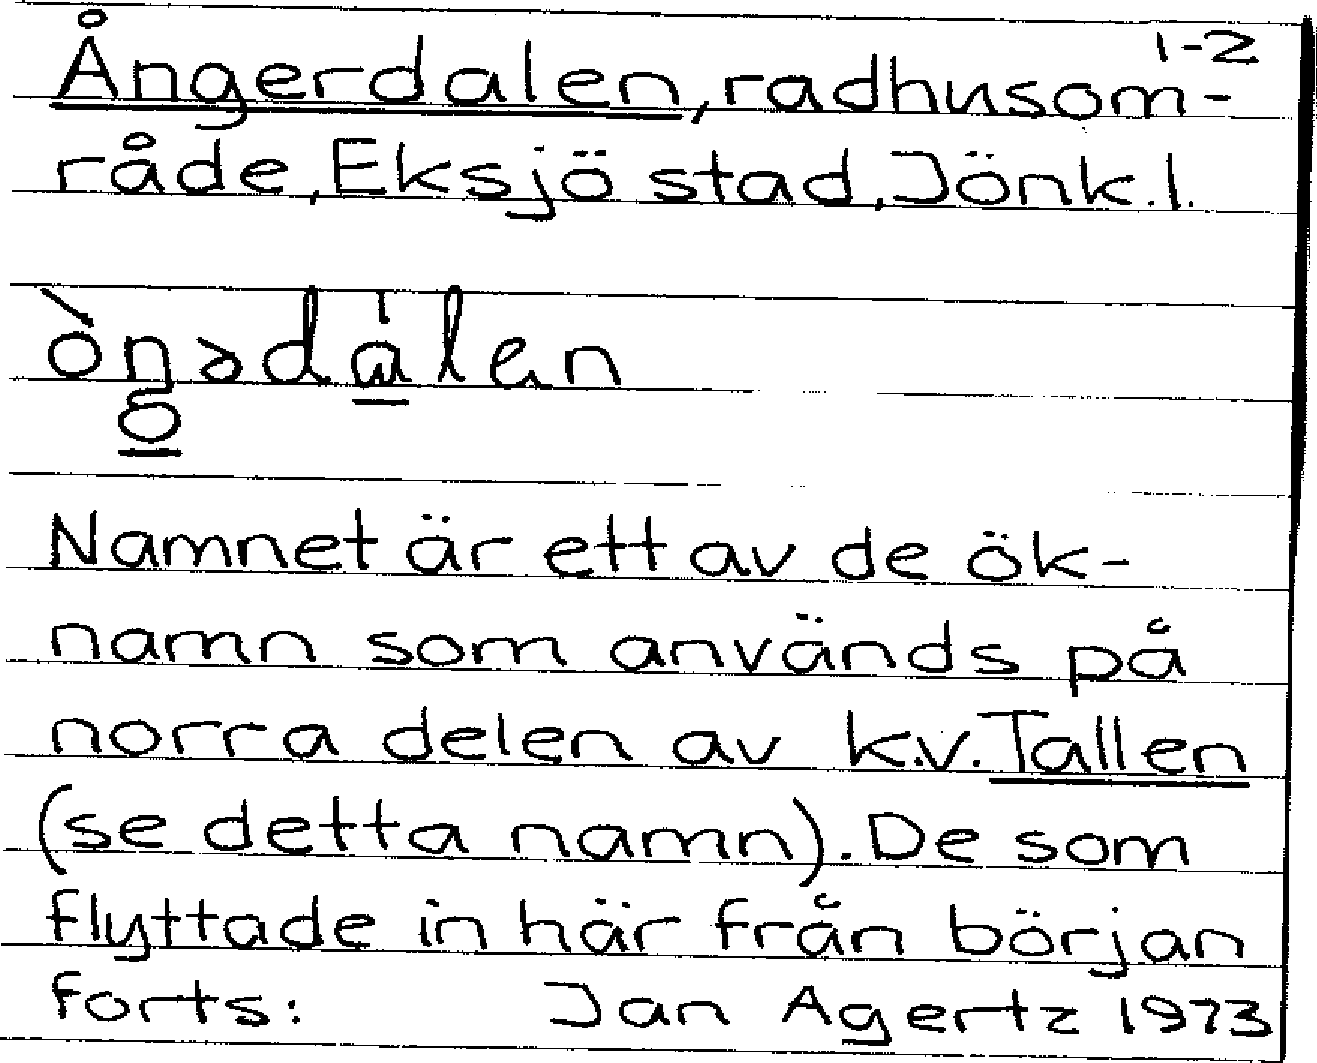 1-2
Ångerdalen, radhusom-
råde, Eksjö stad, Jönk.l.
òŋədàlen
g
Namnet är ett av de ök-
namn som används på
norra delen av kv. Tallen
(se detta namn). De som
flyttade in här från början
forts: Jan Agertz 1973